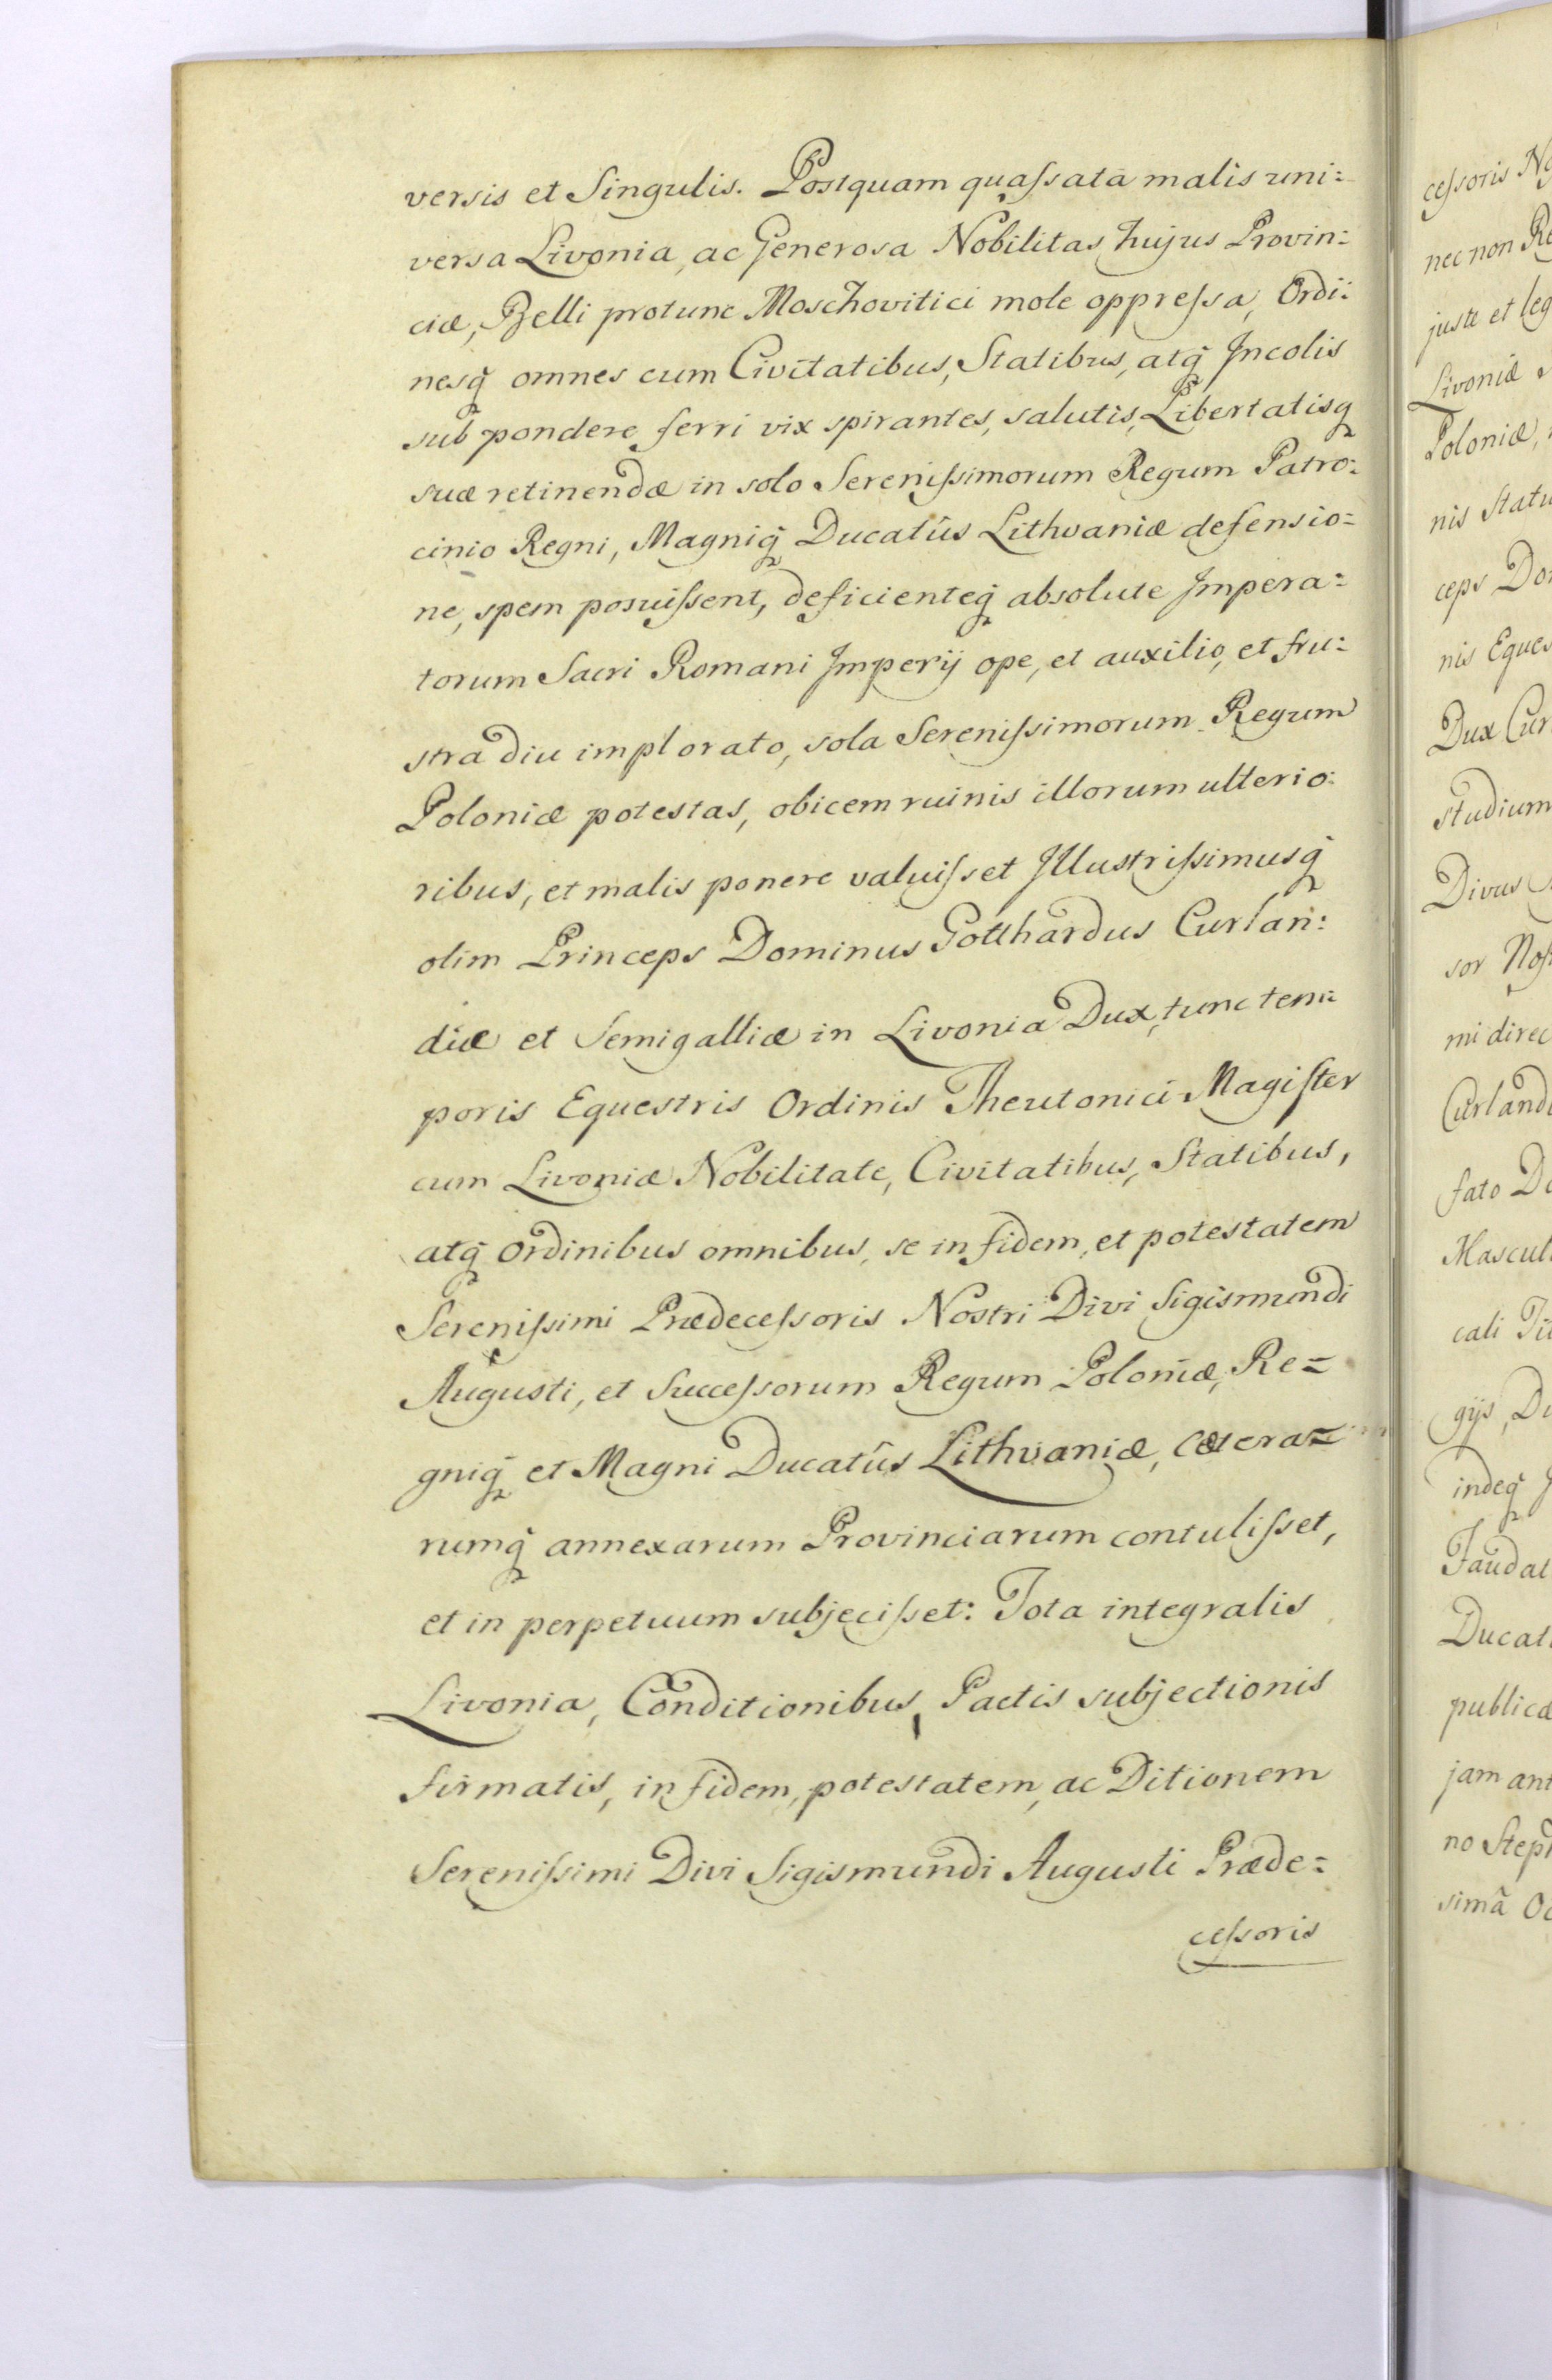 versis et Singulis. Postquam quaſsata malis uni:
versa Livonia, ac Generosa Nobilitas hujus Provin:
ciæ, Belli protunc Moschovitici mole oppreſsa, Ordi:
nesq̃ omnes cum Civitatibus, Statibus, atq̃ Incolis
sub pondere ferri vix spirantes, salutis, Libertatisq
suæ retinendæ in solo Sereniſsimorum Regum Patro:
cinio Regni, Magniq̃ Ducatûs Lithvaniæ defensio=
ne, spem posuiſsent, deficienteq̃ absolute Impera=
torum Sacri Romani Imperij ope, et auxilio, et fru=
stra diu implorato, sola Sereniſsimorum Regum
Poloniæ potestas, obicem ruinis illorum ulterio:
ribus, et malis ponere valuiſset Illustriſsimusq̃
olim Princeps Dominus Gotthardus Curlan:
diæ et Semigalliæ in Livonia Dux, tunc tem=
poris Equestris Ordinis Theutonici Magiſter
cum Livoniæ Nobilitate, Civitatibus, Statibus,
atq̃ Ordinibus omnibus, se in fidem, et potestatem
Sereniſsimi Prædeceſsoris Nostri Divi Sigismundi
Augusti, et Succeſsorum Regum Poloniæ, Re=
gniq̃ et Magni Ducatûs Lithvaniæ, cætera=
rumq̃ annexarum Provinciarum contuliſset,
et in perpetuum subjeciſset: Tota integralis
Livonia, Conditionibus, Pactis subjectionis
firmatis, in fidem, potestatem, ac Ditionem
Sereniſsimi Divi Sigismundi Augusti Præde=
ceſsoris
ceſsoris
nec non
juste et
Livoniæ
Poloniæ,
nis
ceps
nis
Dux
studium
Divus
sor
mi
fato
cali
gijs,
indeq̃
jam
no
simã